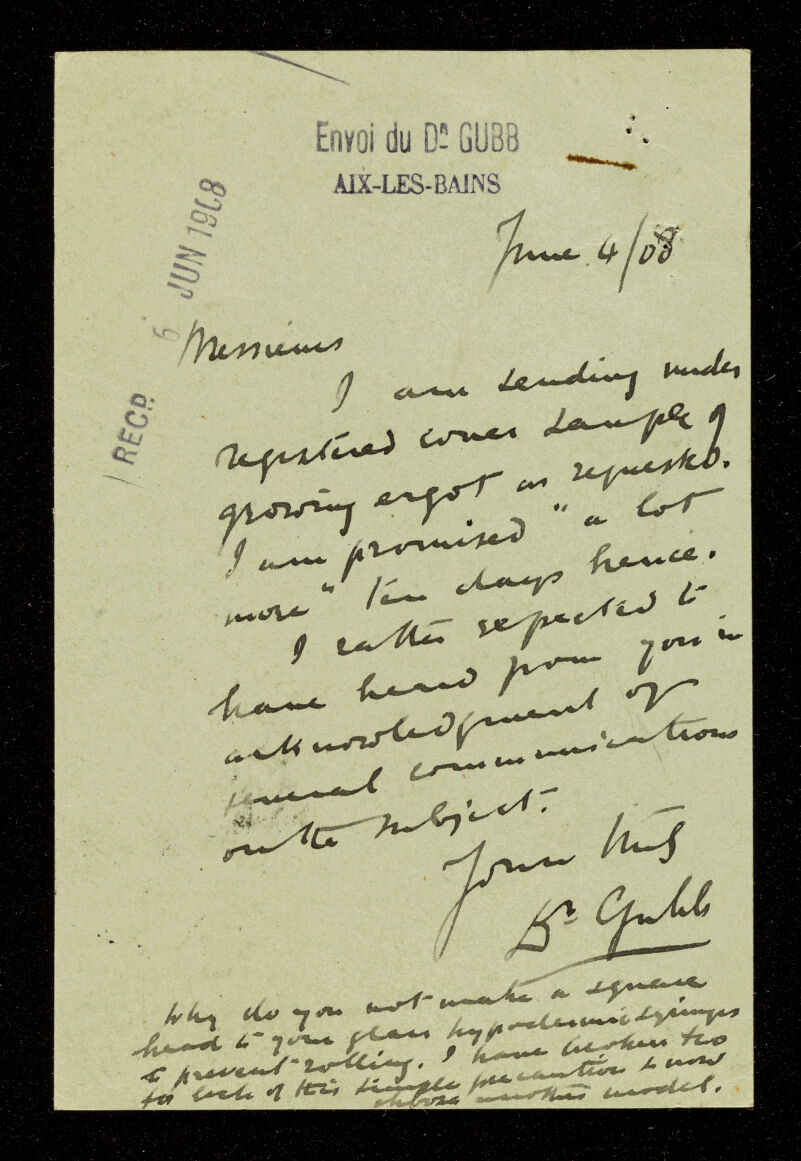 Envoi du Dr GUBB
AIX-LES-BAINS
RECD. 6 JUN 1908
June 4/08
Messieurs
I am sending under
registered cover sample of
growing ergot as requested.
I am promised "a lot
more" ten days hence.
I rather expected to
have heard from you in
acknowledgment of
several communications
on the subject.
Yours truly
Dr Gubb
Why do you not make a square
head to your glass hypodermic syringes
to prevent rolling. I have broken two
for lack of this simple precaution & now
choose another model.